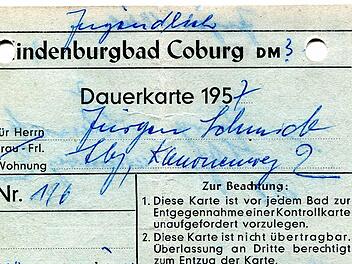 Jugendlich
indenburgbad Coburg DM 3
Dauerkarte 1957
ür Herrn Jürgen Schmidt
rau - Frl.
Wohnung Cbg, Kanonenweg 2
Nr. 116
Zur Beachtung:
1. Diese Karte ist vor jedem Bad zur
Entgegennahme einer Kontrollkarte
unaufgefordert vorzulegen.
2. Diese Karte ist nicht übertragbar.
Überlassung an Dritte berechtigt
zum Entzug der Karte.